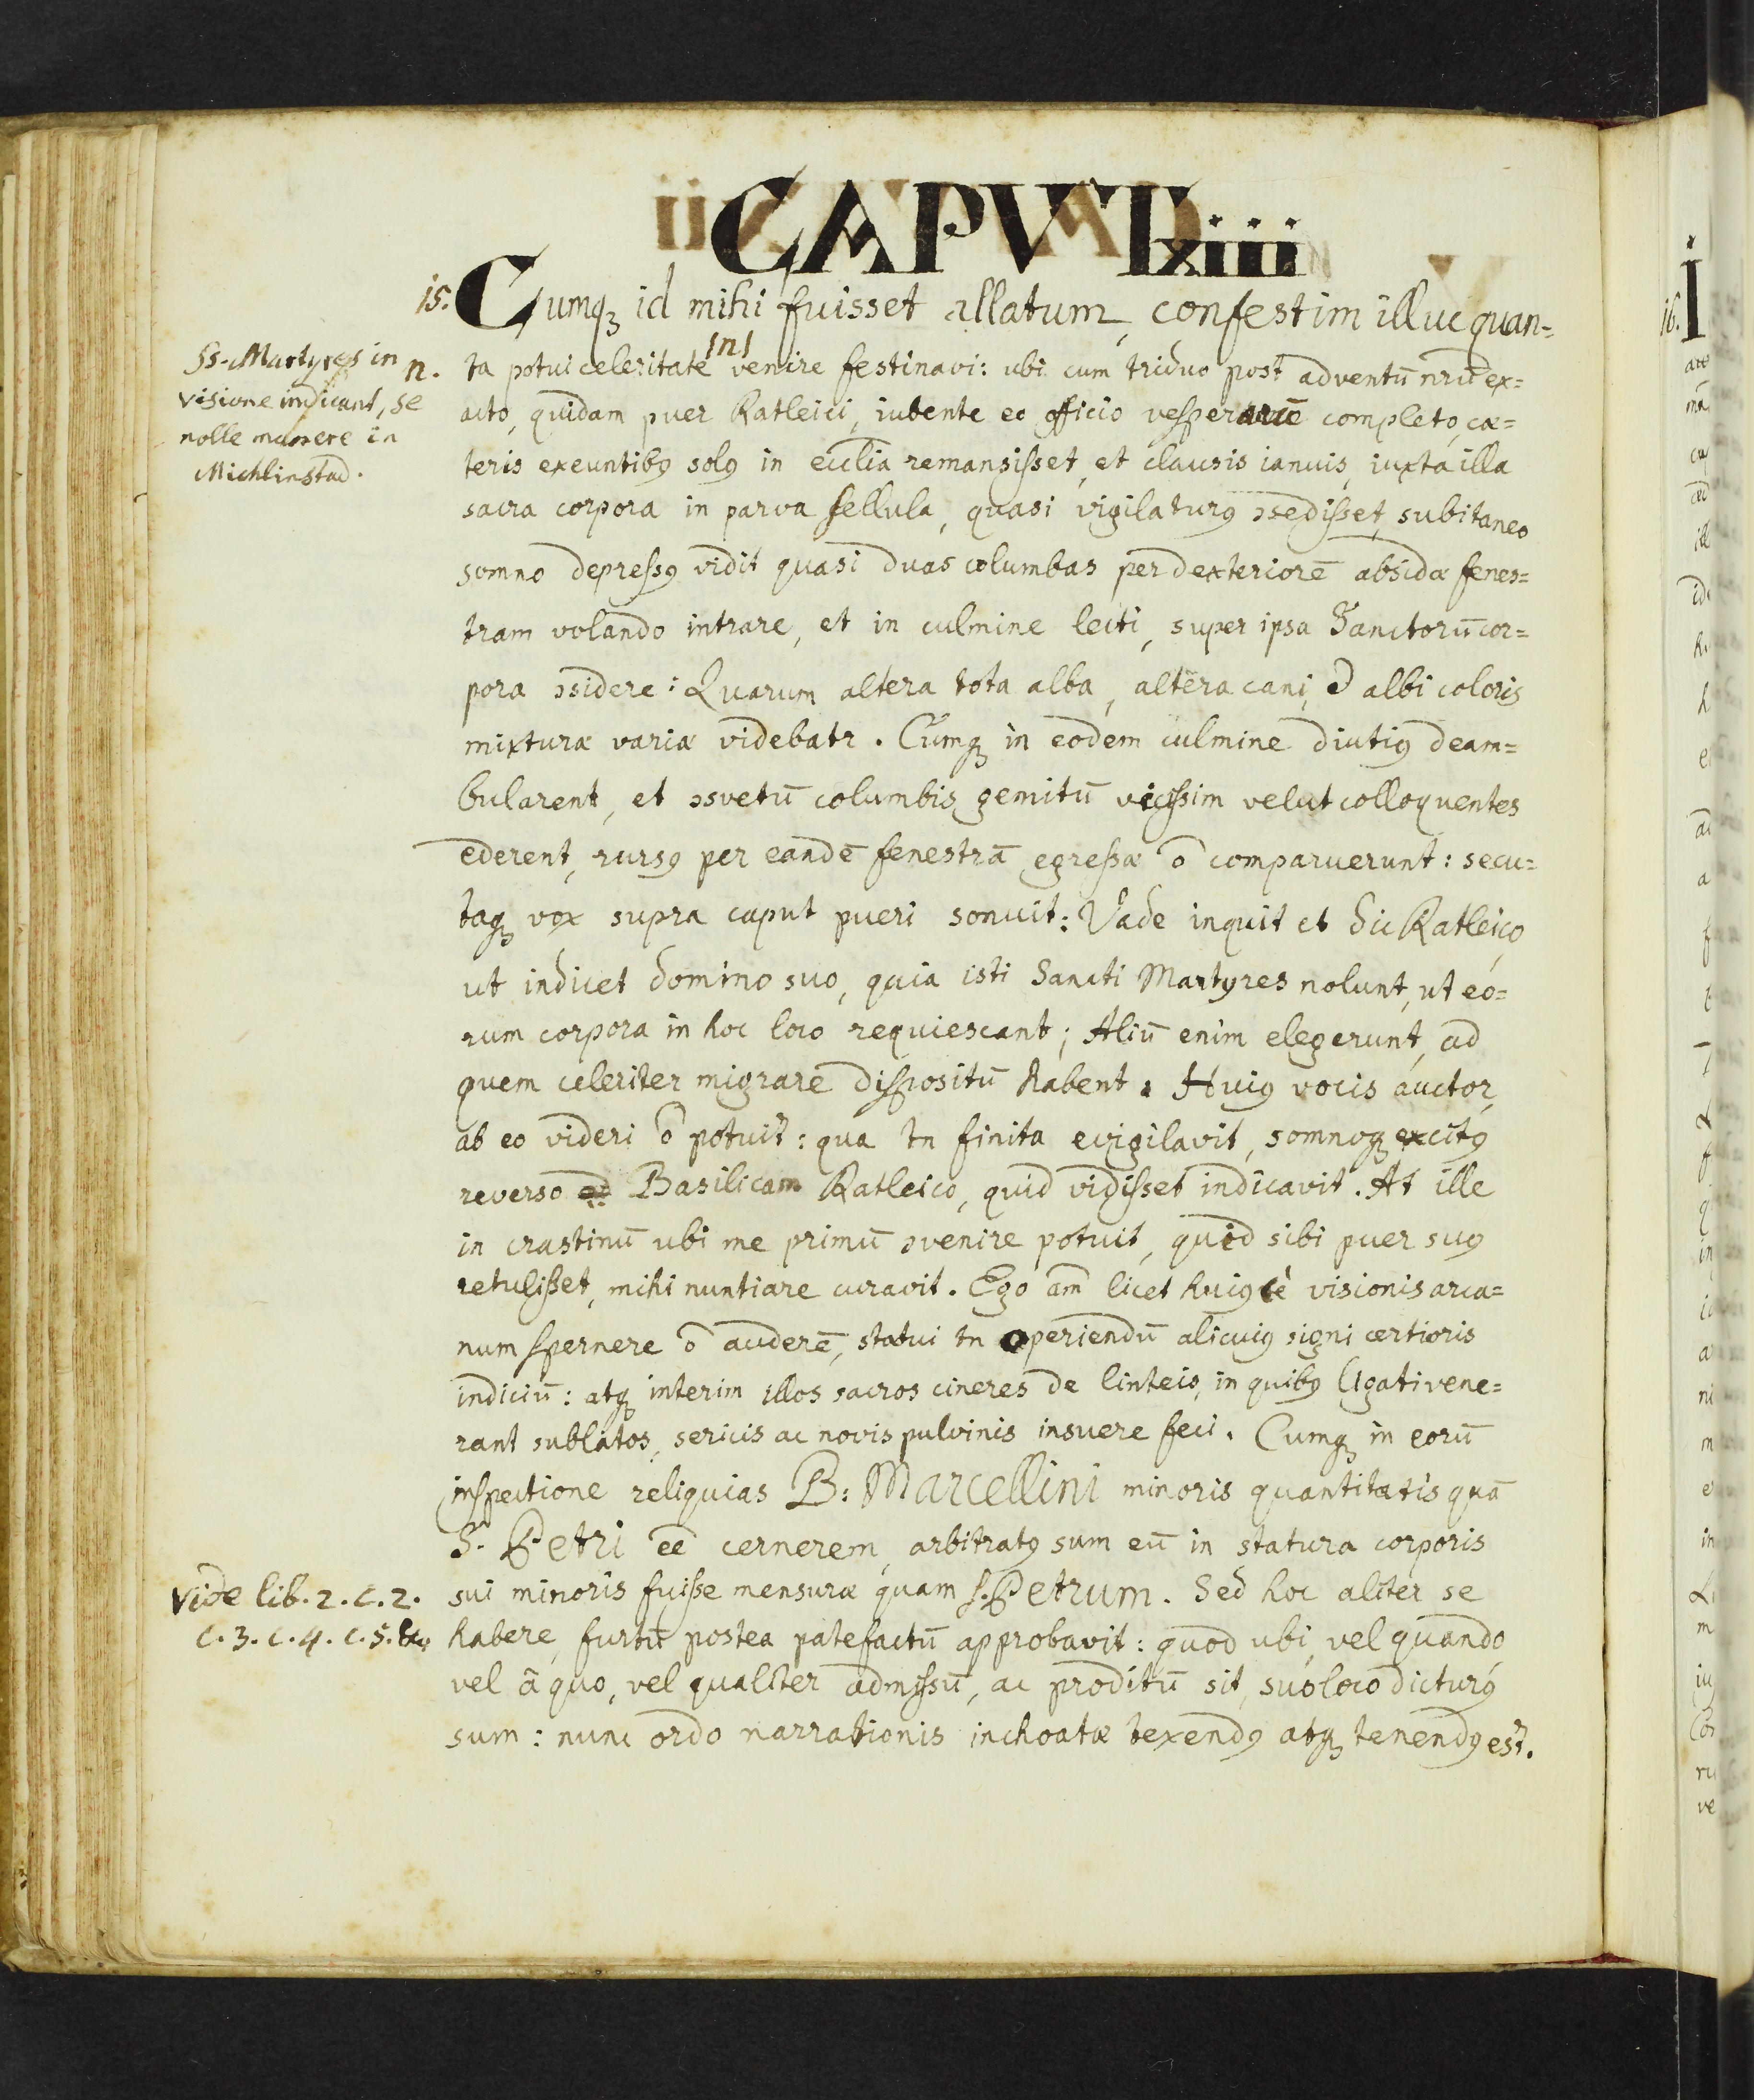 CAPVT xiii
15. Cumqꝫ id mihi fuisset allatum, confestim illuc quan=
Ss. Martyres in
visione indicant, se
nolle manere in
Michlinstad.
n. ta potui celeritate |n| venire festinavi: ubi cum triduo post adventū nrū ex=
acto, quidam puer Ratleici, iubente eo officio vesper completo, cæ=
teris exeuntibꝰ solꝰ in ecclia remansisset, et clausis ianuis, iuxta illa
sacra corpora in parva sellula, quasi vigilaturꝰ ɔsedisset, subitaneo
somno depressꝰ vidit quasi duas columbas per dexteriorē absidæ fenes=
tram volando intrare, et in culmine lecti, super ipsa Sanctorū cor=
pora ɔsidere: Quarum altera tota alba, altera cani, & albi coloris
mixturæ variæ videbatr. Cumqꝫ in eodem culmine diutiꝰ deam=
bularent, et ɔsvetū columbis gemitū vicissim velut colloquentes
ederent, rursꝰ per eandē fenestrā egressæ ō comparuerunt: secu=
taqꝫ vox supra caput pueri sonuit: Vade inquit et dic Ratleico,
ut indicet domino suo, quia isti Sancti Martyres nolunt, ut eo=
rum corpora in hoc loco requiescant; Aliū enim elegerunt, ad
quem celeriter migrare dispositū habent. Huiꝰ vocis auctor,
ab eo videri ō potuit: qua tn finita evigilavit, somnoqꝫ excitꝰ
reverso ad Basilicam Ratleico, quid vidisset indicavit. At ille
in crastinū ubi me primū ɔvenire potuit, quid sibi puer suꝰ
retulisset, mihi nuntiare curavit. Ego am licet huiꝰcè visionis arca=
num spernere ō auderē, statui tn operiendū alicuiꝰ signi certioris
indiciū: atqꝫ interim illos sacros cineres de linteis, in quibꝰ ligati vene=
rant sublatos, sericis ac novis pulvinis insuere feci. Cumqꝫ in eorū
inspectione reliquias B: Marcellini minoris quantitatis quā
S. Petri eē cernerem, arbitratꝰ sum eū in statura corporis
Vide lib. 2. c. 2.
c. 3. c. 4. c. 5. &c.
sui minoris fuisse mensuræ quam S. Petrum. Sed hoc aliter se
habere, furtū postea patefactū approbavit: quod ubi, vel quando,
vel â quo, vel qualiter admissū, ac proditū sit, suo loco dicturꝰ
sum: nunc ordo narrationis inchoatæ texendꝰ atqꝫ tenendꝰ est.
16. I